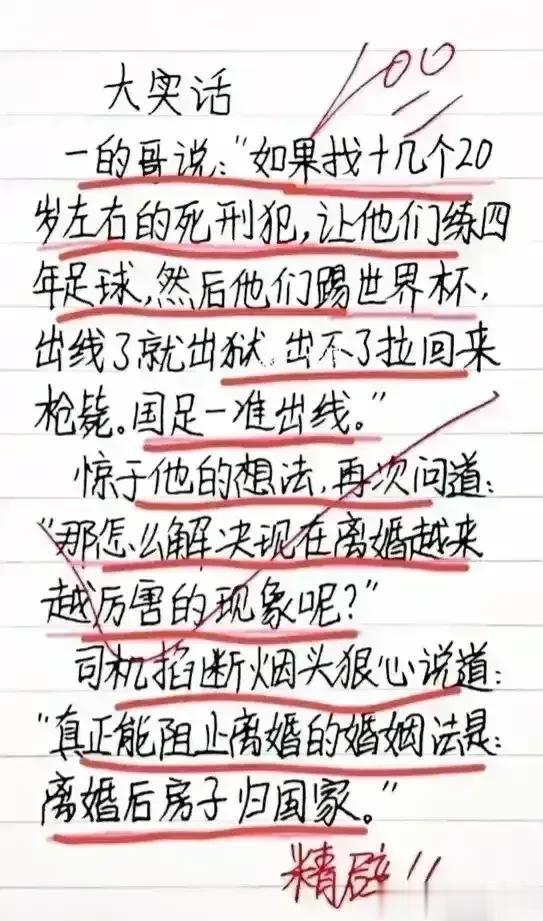 100
大实话
一的哥说:“如果找十几个20
岁左右的死刑犯,让他们练四
年足球,然后他们踢世界杯,
出线了就出狱 出不了拉回来
枪毙。国足一准出线。”
惊于他的想法,再次问道:
“那怎么解决现在离婚越来
越厉害的现象呢?”
司机掐断烟头狠心说道:
“真正能阻止离婚的婚姻法是:
离婚后房子归国家。”
精辟!!